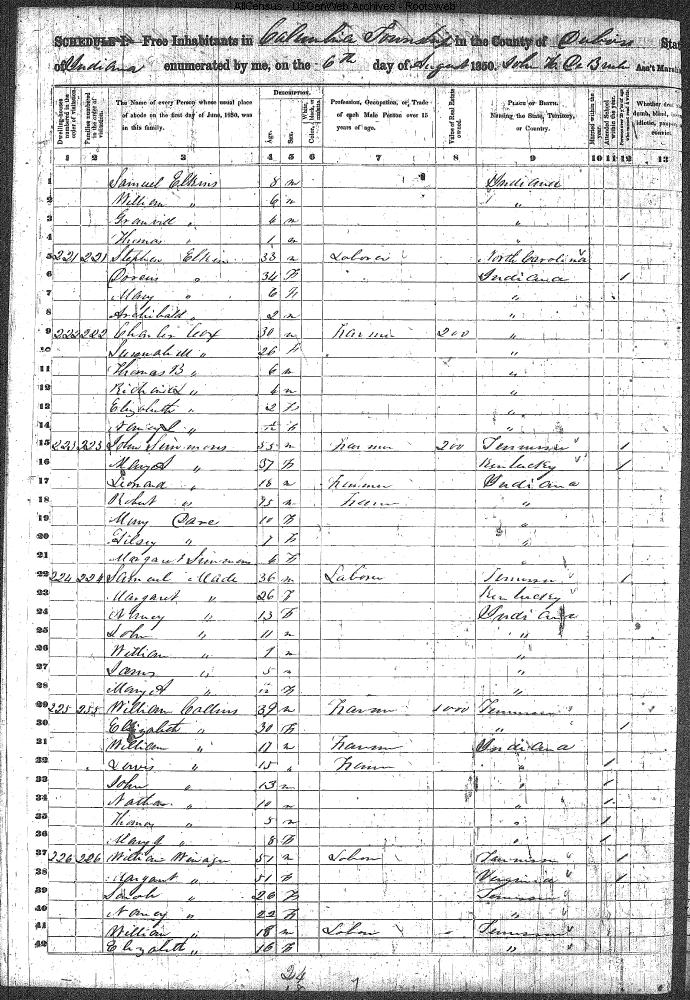 AllCensus - USGenWeb Archives - Rootsweb
SCHEDULE I.- Free Inhabitants in Columbia Township in the County of State
of Indiana enumerated by me, on the 6th day of August 1850. John Ass't Marshal
Dwelling-houses numbered in the order of visitation.
Families numbered in the order of visitation.
The Name of every Person whose usual place of abode on the first day of June, 1850, was in this family.
DESCRIPTION.
Age.
Sex.
Color, White, black, or mulatto.
Profession, Occupation, or Trade of each Male Person over 15 years of age.
Value of Real Estate owned.
PLACE OF BIRTH. Naming the State, Territory, or Country.
Married within the year.
Attended School within the year.
Whether deaf dumb, blind, idiotic, convict.
1 2 3 4 5 6 7 8 9 10 11 12 13
1 Samuel Elkins 8 m Indiana
2 William " 6 m "
3 " 4 m "
4 Thomas " 1 m "
5 221 221 Stephen Elkins 33 m Laborer North Carolina
6 " 34 F Indiana 1
7 Mary " 6 F "
8 Archibald " 2 m "
9 222 222 Charles Cox 30 m Farmer 200 "
10 " 26 F "
11 Thomas B " 6 m "
12 Richard " 4 m "
13 Elizabeth " 2 F "
14 " F "
15 223 223 John Simmons 55 m Farmer 200 Tennessee 1
16 Mary A " 37 F Kentucky 1
17 Leonard " 18 m Farmer Indiana
18 Robert " 15 m Farmer "
19 Mary 10 F "
20 " 7 F "
21 Margaret Simmons 6 F "
22 224 224 Samuel Wade 36 m Laborer Tennessee 1
23 Margaret " 26 F Kentucky
24 " 13 F Indiana
25 John " 11 m "
26 William " 7 m "
27 James " 5 m "
28 Mary A " F "
29 225 255 William Collins 39 m Farmer 1000 Tennessee
30 Elizabeth " 30 F " 1
31 William " 17 m Farmer Indiana
32 Lewis " 15 " Farmer " 1
33 John " 13 m " 1
34 Nathan " 10 m " 1
35 Thomas " 5 m " 1
36 Mary J " 8 F " 1
37 226 226 William 51 m Labor Tennessee 1
38 Margaret " 51 F Virginia 1
39 Sarah " 26 F Tennessee
40 Nancy " 22 F "
41 William " 18 m Labor Tennessee
42 Elizabeth " 16 F "
24